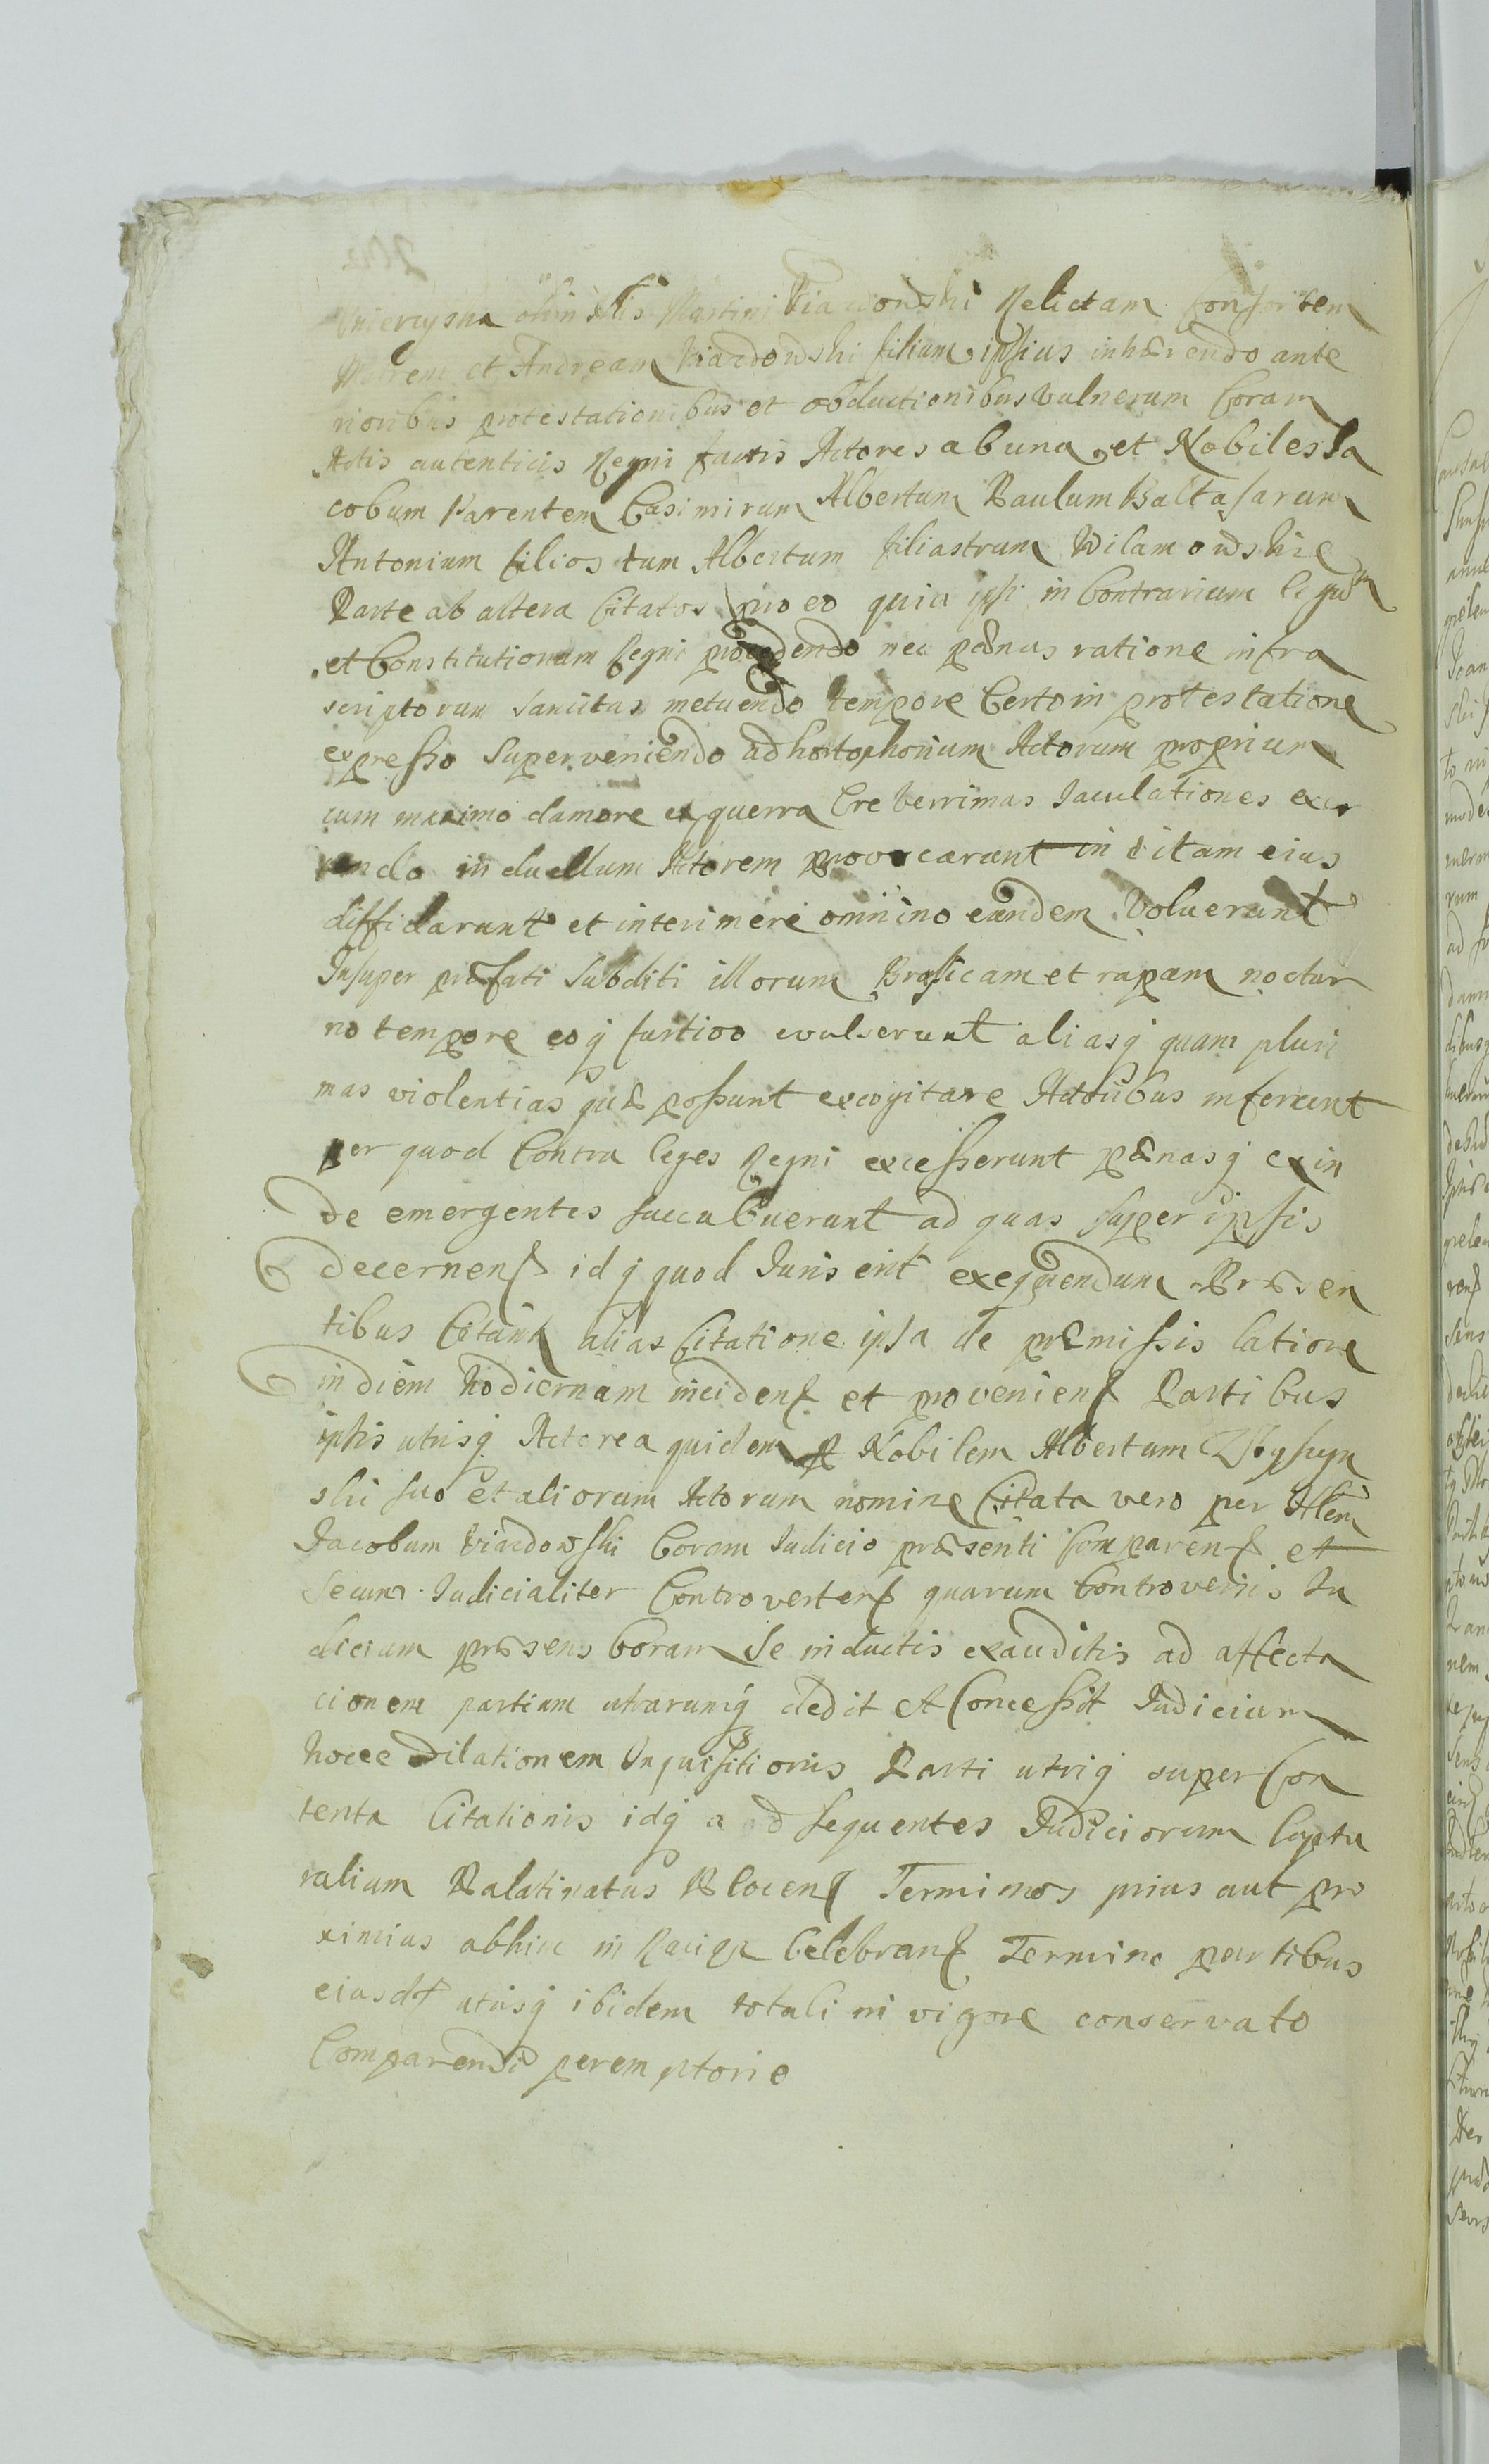 olim Martini Viazdowski Relictam Consortem
Matrem et Andream Viazdowski filium ipsius inhærendo ante
rioribus protestationibus et obductionibus vulnerum Coram
Actis autenticis Regni factis Actores ab una et Nobiles Ja
cobum Parentem Casimirum Albertum Paulum Baltasarum
Antonium filios tum Albertum filiastrum Wilamowskie
Parte ab altera Citatos pro eo quia ipsi in Contrarium legum
et Constitutionum Regni procedendo nec pænas ratione infra
scriptorum sancitas metuendo tempore Certo in protestatione
expresso Superveniendo ad hortophorium Actorum proprium
cum maximo clamore et guerra Creberrimas Iaculationes exer
cendo in duellum Actorem provocarunt in vitam eius
diffidarunt et interimere omnino eundem Voluerunt
Insuper præfati Subditi illorum Brassicam et rapam noctur
no tempore eoq furtivo evulserunt aliasq quam pluri
mas violentias quæ possunt excogitare Actoribus inferunt
per quod Contra leges Regni excesserunt pænasq exin
de emergentes succubuerunt ad quas super ipsis
decernen id q quod Iuris erit exequendum Præsen
tibus Citant alias Citatione ipsa de præmissis latiore
in diem hodiernam inciden et provenien Partibus
ipsis utrisq Actorea quidem p Nobilem Albertum
ski suo et aliorum Actorum nomine Citata vero per
Jacobum Viazdowski Coram Iudicio præsenti Comparen et
Secum Judicialiter Controverten quarum Controversiis Iu
dicium præsens Coram Se inductis exauditis ad affecta
cionem partium utrarumq dedit et Concessit Judicium
hocce Dilationem Inquisitionis Parti utriq super Con
tenta Citationis idq ad sequentes Judiciorum Captu
ralium Palatinatus Plocen Terminos prius aut pro
ximius abhinc in Raciąż Celebran Termino partibus
eiusd utrisq ibidem totali in vigore conservato
Comparendi peremptorie